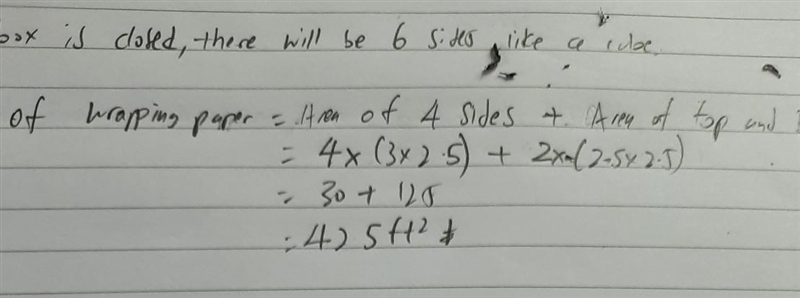 box is closed, there will be 6 sides, like a cube.
of wrapping paper = Area of 4 sides + Area of top and
= 4x (3x2.5) + 2x(2.5x2.5)
= 30 + 125
= 425 ft²